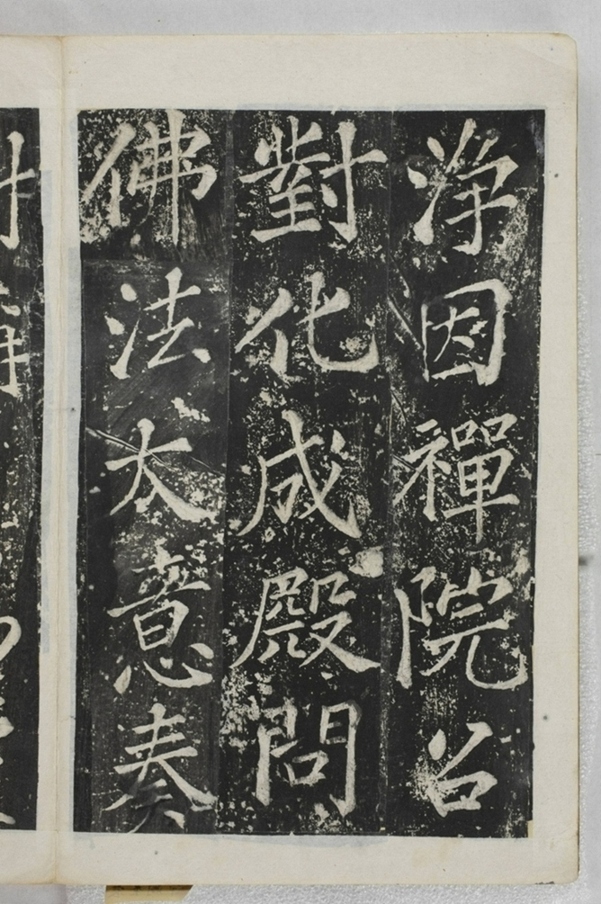 淨因禪院召
對化成殿問
佛法大意奏